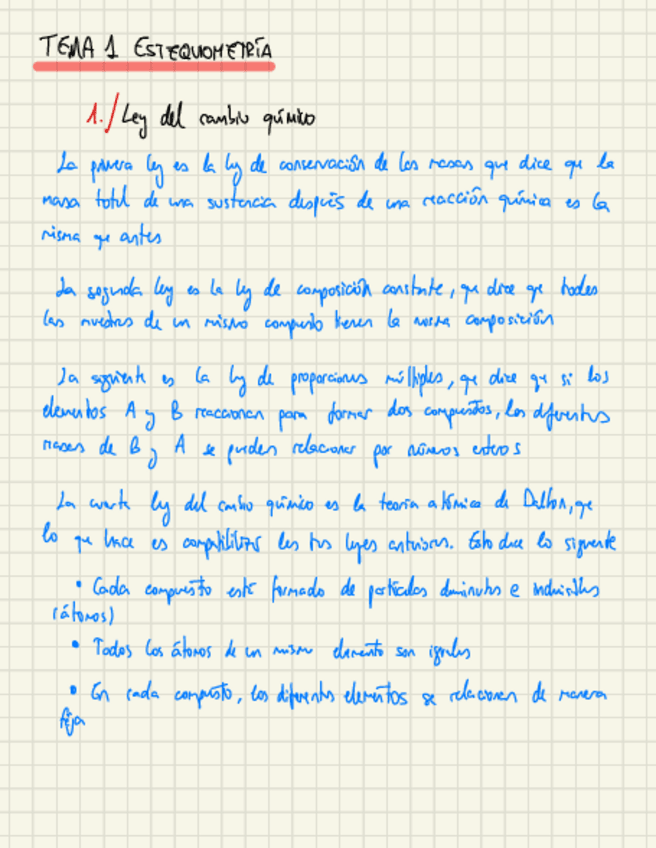 TEMA 1 ESTEQUIOMETRÍA
1./ Ley del cambio químico
La primera ley es la ley de conservación de las masas que dice que la
masa total de una sustancia después de una reacción química es la
misma que antes
La segunda ley es la ley de composición constante, que dice que todas
las muestras de un mismo compuesto tienen la misma composición
La siguiente es la ley de proporciones múltiples, que dice que si los
elementos A y B reaccionan para formar dos compuestos, las diferentes
masas de B y A se pueden relacionar por números enteros
La cuarta ley del cambio químico es la teoría atómica de Dalton, que
lo que hace es compatibilizar las tres leyes anteriores. Esto dice lo siguiente
• Cada compuesto esté formado de partículas diminutas e indivisibles
(átomos)
• Todos los átomos de un mismo elemento son iguales
• En cada compuesto, los diferentes elementos se relacionan de manera
fija